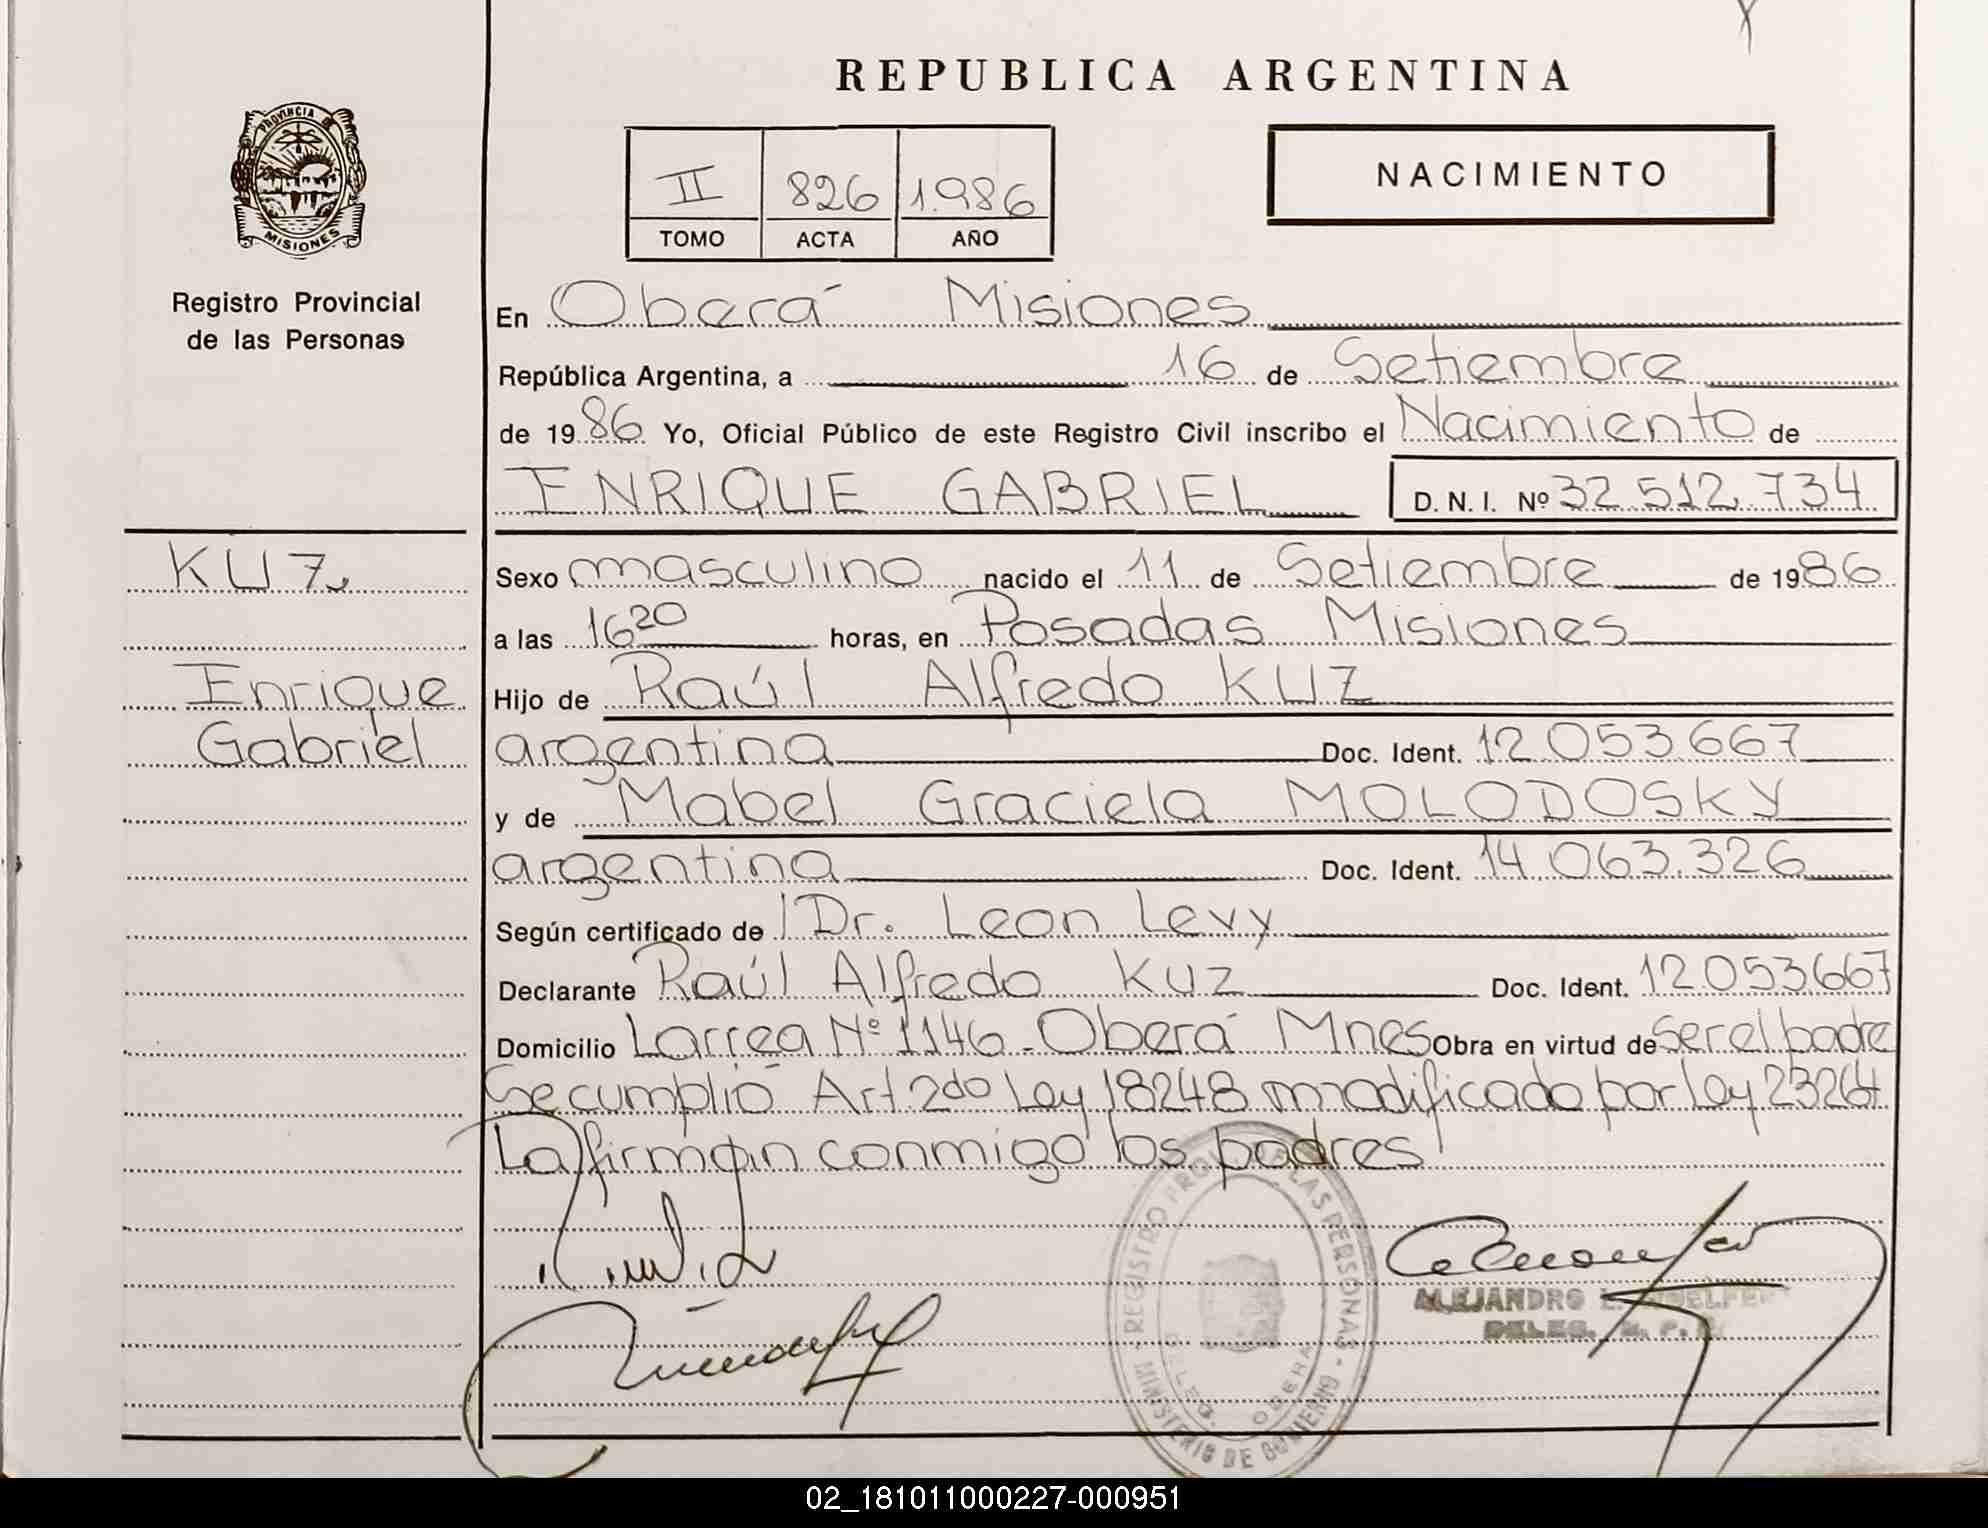 REPUBLICA ARGENTINA
PROVINCIA DE
MISIONES
Registro Provincial
de las Personas
II 826 1.986
TOMO ACTA AÑO
NACIMIENTO
En Oberá Misiones
República Argentina, a 16 de Setiembre
de 1986 Yo, Oficial Público de este Registro Civil inscribo el Nacimiento de
ENRIQUE GABRIEL D. N. I. Nº 32.512.734
KUZ
Enrique
Gabriel
Sexo masculino nacido el 11 de Setiembre de 1986
a las 16 20 horas, en Posadas Misiones
Hijo de Raúl Alfredo KUZ
argentina Doc. Ident. 12.053.667
y de Mabel Graciela MOLODOSKY
argentina Doc. Ident. 14.063.326
Según certificado de Dr. Leon Levy
Declarante Raúl Alfredo KUZ Doc. Ident. 12.053.667
Domicilio Larrea Nº 1146 - Oberá Mnes Obra en virtud de ser el padre
Se cumplió Art. 2do Ley 18248 modificado por ley 23264
La firman conmigo los padres
REGISTRO PROV. DE LAS PERSONAS - MINISTERIO DE GOBIERNO
DELEG. OBERA
ALEJANDRO
DELEG. R. P.
02_181011000227-000951